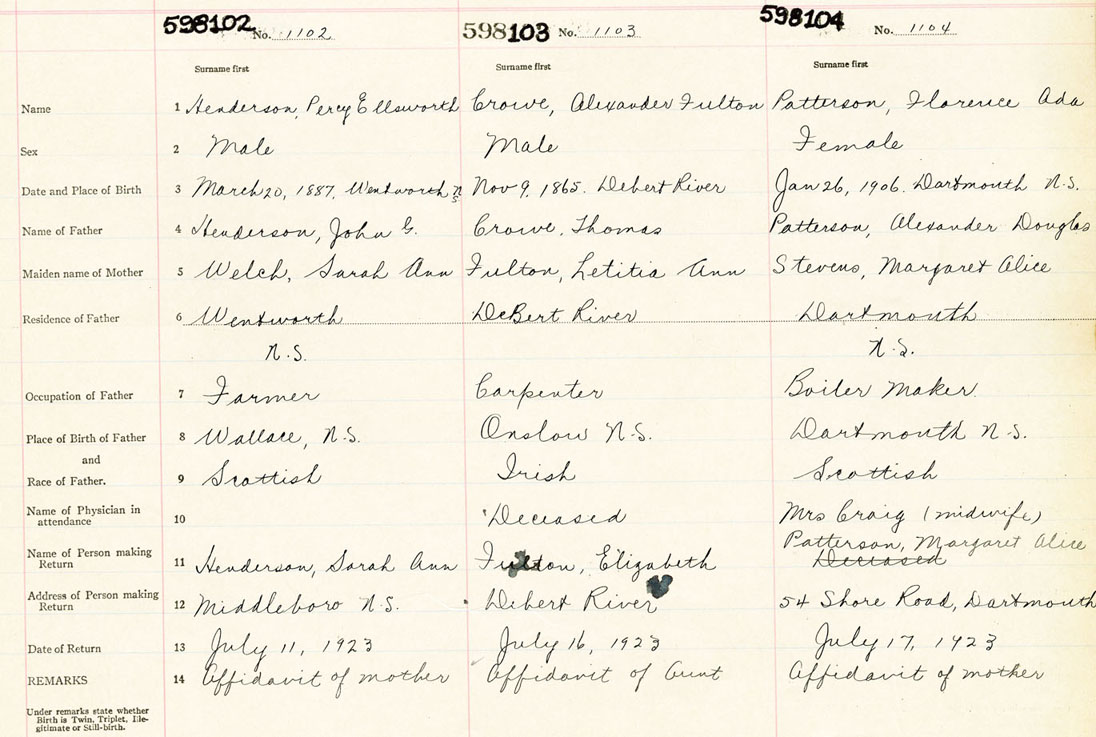 598102 No. 1102 598103 No. 1103 598104 No. 1104
Surname first Surname first Surname first
Name 1 Henderson, Percy Ellsworth Crowe, Alexander Fulton Patterson, Florence Ada
Sex 2 Male Male Female
Date and Place of Birth 3 March 20, 1887, Wentworth, N.S. Nov 9, 1865. Debert River Jan 26, 1906. Dartmouth N.S.
Name of Father 4 Henderson, John G. Crowe, Thomas Patterson, Alexander Douglas
Maiden name of Mother 5 Welch, Sarah Ann Fulton, Letitia Ann Stevens, Margaret Alice
Residence of Father 6 Wentworth DeBert River Dartmouth
N.S. N.S.
Occupation of Father 7 Farmer Carpenter Boiler Maker.
Place of Birth of Father 8 Wallace, N.S. Onslow N.S. Dartmouth N.S.
and
Race of Father. 9 Scottish Irish Scottish
Name of Physician in
attendance 10 Deceased Mrs Craig (midwife)
Patterson, Margaret Alice
Name of Person making
Return 11 Henderson, Sarah Ann Fulton, Elizabeth Deceased
Address of Person making
Return 12 Middleboro N.S. Debert River 54 Shore Road, Dartmouth
Date of Return 13 July 11, 1923 July 16, 1923 July 17, 1923
REMARKS 14 Affidavit of mother Affidavit of Aunt Affidavit of mother
Under remarks state whether
Birth is Twin, Triplet, Ille-
gitimate or Still-birth.